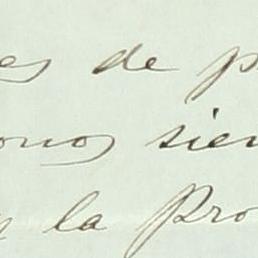 es de p
onos sien
la Pro